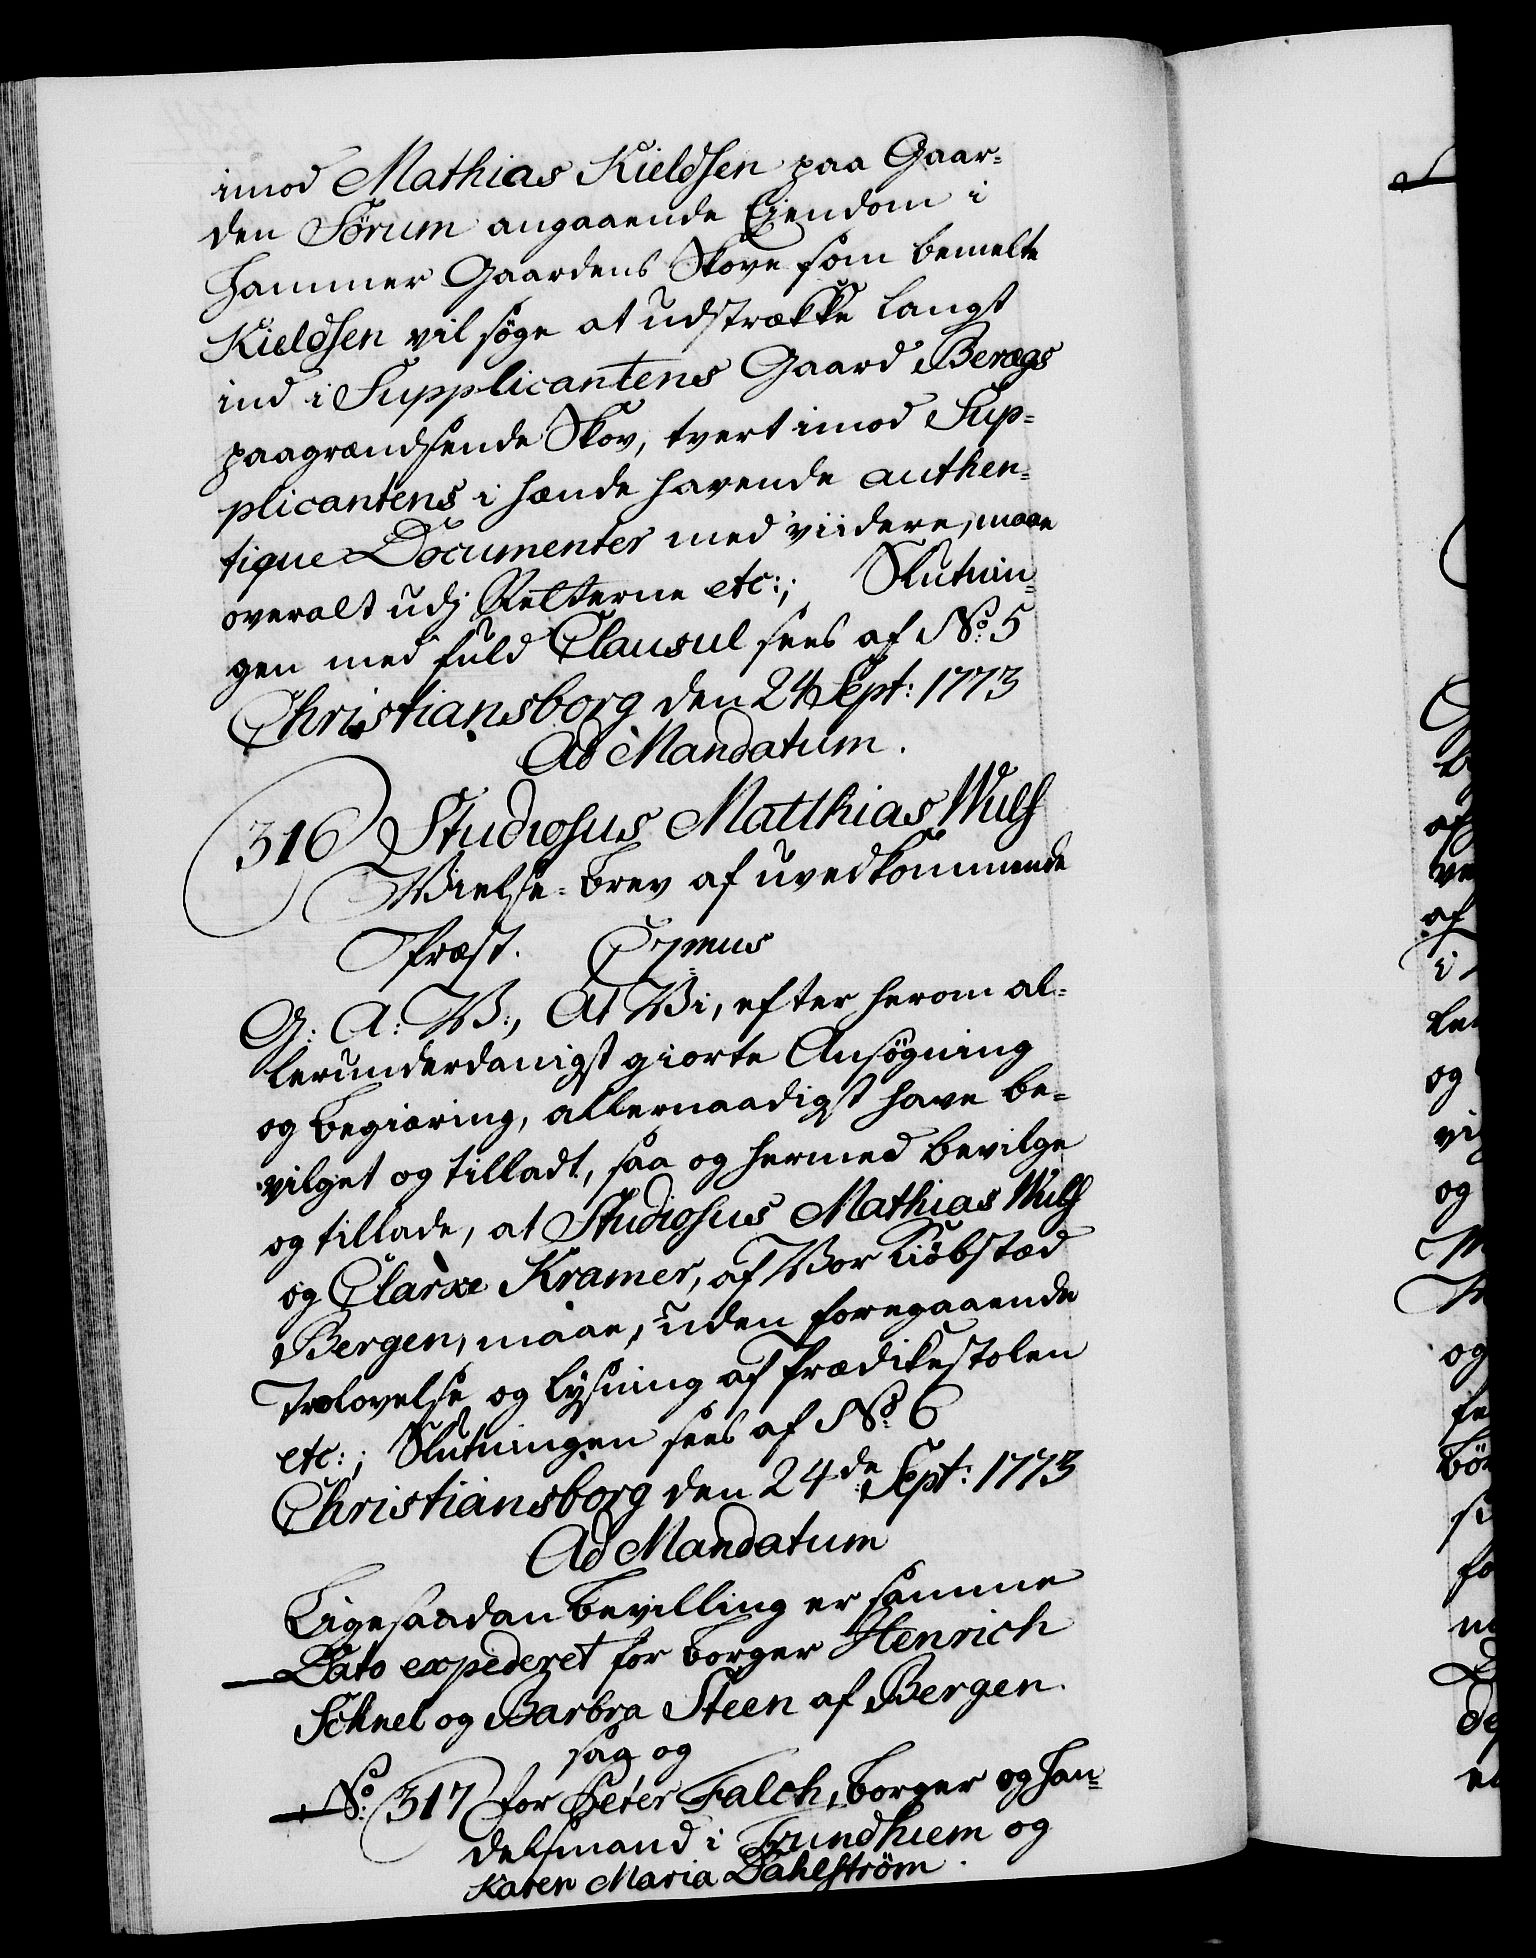 imod Mathias Kieldsen paa Gaar-
den Sørum angaaende Eÿendom i
Hammer Gaardens Skove som bemelte
Kieldsen vil søge at udstrække langt
ind i Supplicantens Gaard Berægs
paagrændsende Skov, tvert imod Sup-
plicantens i hænde havende authen-
tique Documenter med viidere, maae
overalt udj Retterne etc:; Slutnin-
gen med fuld Clausul sees af No: 5
Christiansborg den 24 Sept: 1773
Ad Mandatum.
316 Studiosus Matthias Wulf
Vielse-brev af uvedkommende
Præst. C 7mus
G: A: V:, At Vi, efter herom al-
lerunderdanigst giorte Ansøgning
og begiæring, allernaadigst have be-
vilget og tilladt, saa og hermed bevilge
og tillade, at Studiosus Mathias Wulf
og Claræ Kramer, af Vor Kiøbstæd
Bergen, maae, uden foregaaende
Trolovelse og lysning af Prædikestolen
etc:; Slutningen sees af No: 6
Christiansborg den 24de Sept: 1773
Ad Mandatum
Ligesaadan bevilling er samme
Dato expederet for borger Henrich
Schnel og Barbra Steen af Bergen.
saa og
No: 317 for Peter Falch, borger og Han-
delsmand i Trundhiem og
Karen Maria Dahlström.